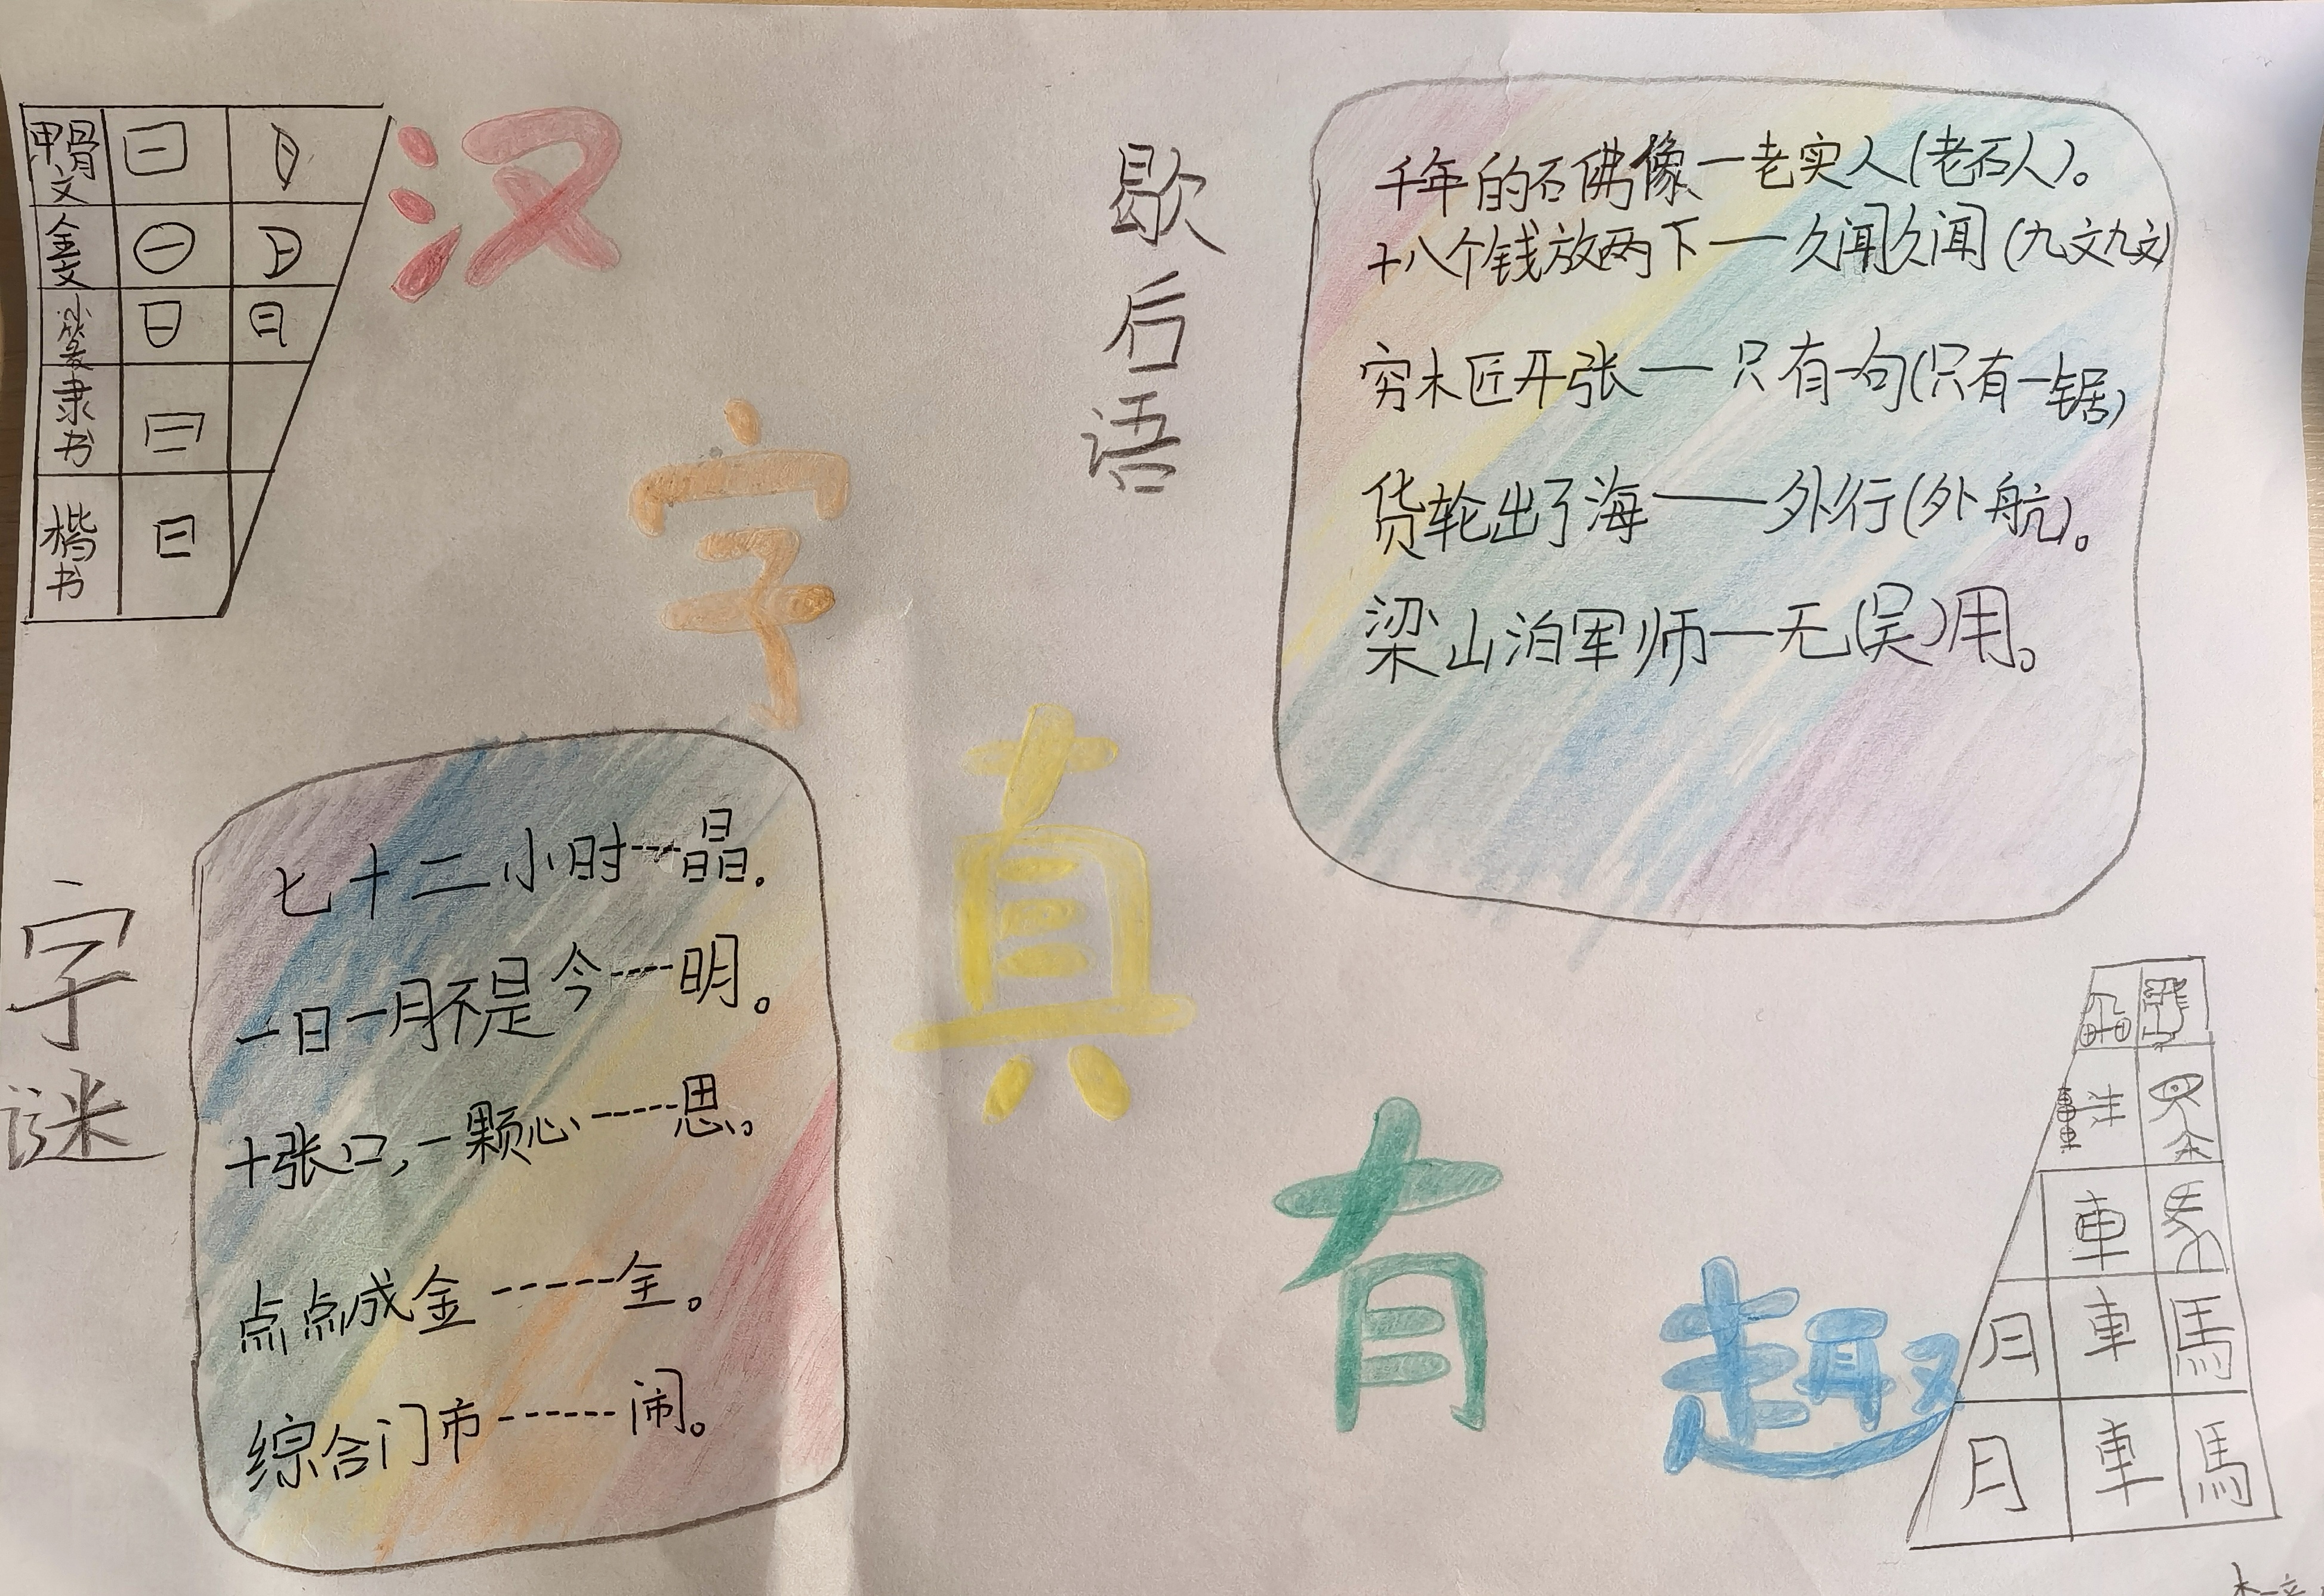 甲骨文 日 月
金文 日 月
小篆 日 月
隶书 日
楷书 日
汉字真有趣
歇后语
千年的石佛像一老实人(老石人)。
十八个钱放两下——久闻久闻(九文九文)
穷木匠开张——只有一句(只有一锯)
货轮出了海——外行(外航)。
梁山泊军师——无(吴)用。
字谜
七十二小时----晶.
一日一月不是今----明。
十张口,一颗心-----思。
点点成金-----全。
综合门市------闹。
車 馬
月 車 馬
月 車 馬